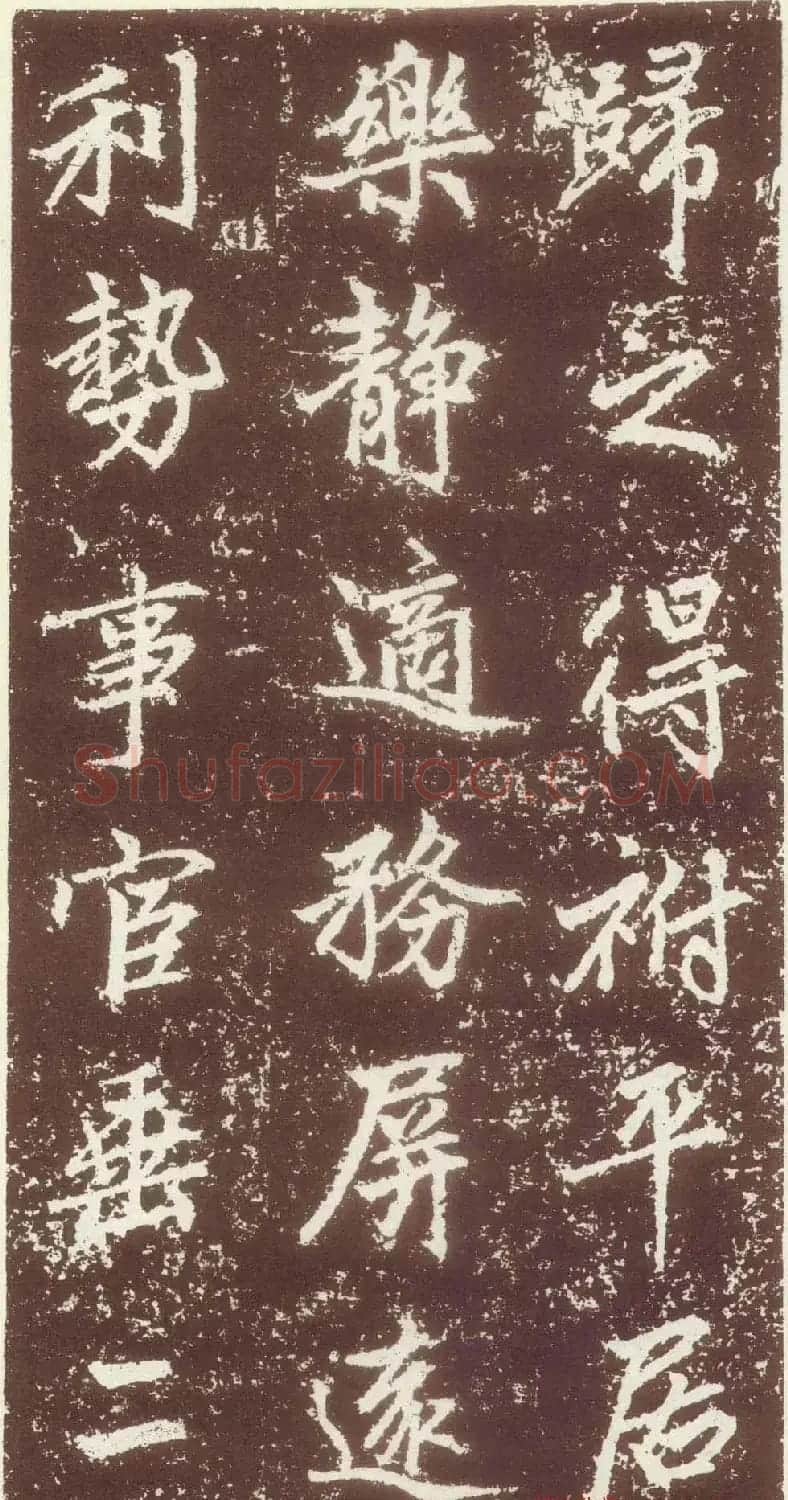 歸之得祔平居
樂静適務屏遠
利勢事官垂二
Shufaziliao.COM